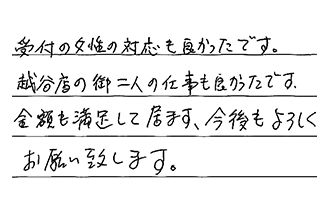 受付の女性の対応も良かったです。
越谷店の御二人の仕事も良かったです.
金額も満足して居ます、今後もよろしく
お願い致します。